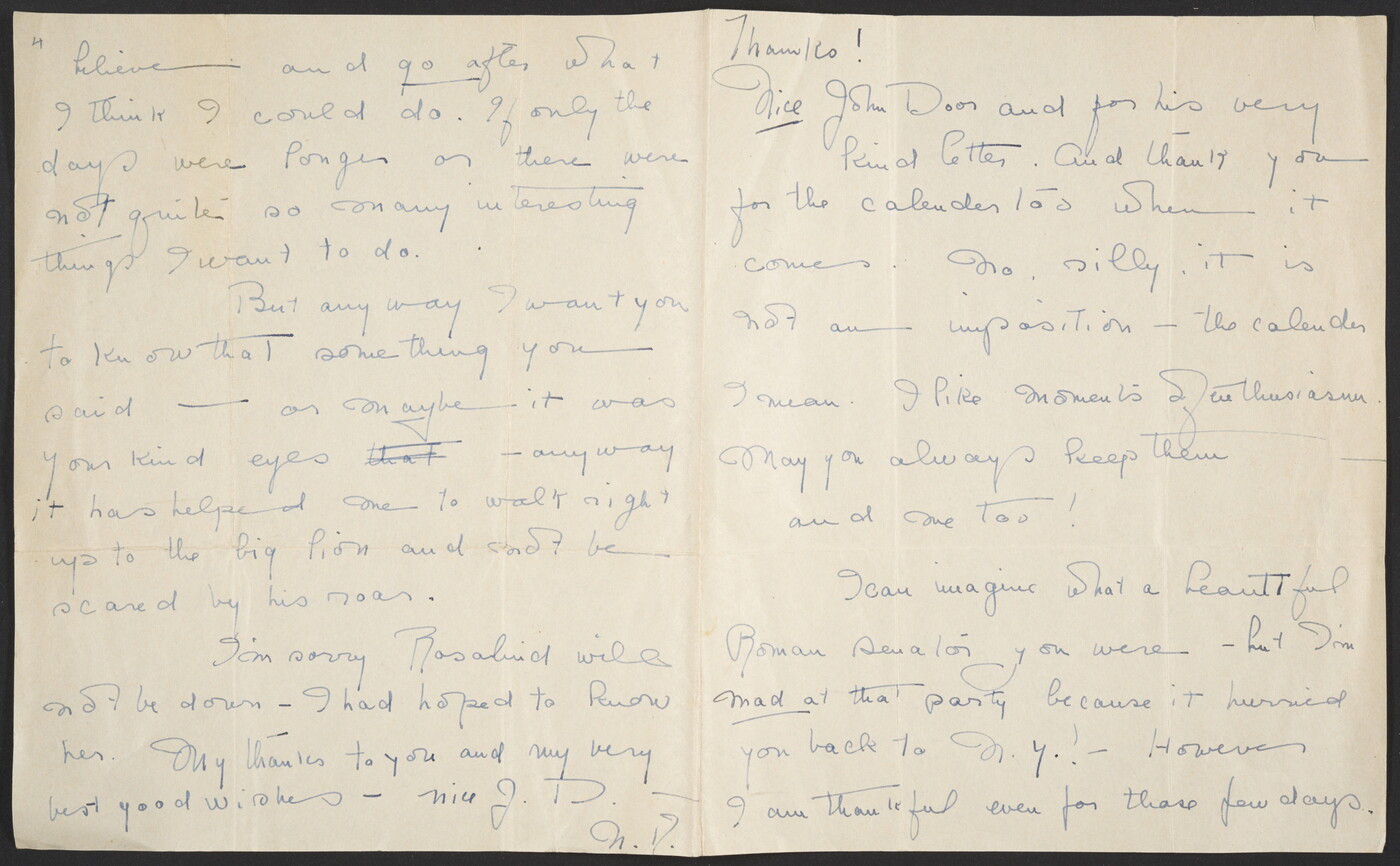 4
believe — and go after what
I think I could do. If only the
days were longer or there were
not quite so many interesting
things I want to do.
But any way I want you
to know that something you
said — or maybe it was
your kind eyes that — anyway
it has helped me to walk right
up to the big lion and not be
scared by his roar.
I'm sorry Rosalind will
not be down — I had hoped to know
her. My thanks to you and my very
best good wishes — nice J. D. —
N. D.
Thanks!
Nice John Door and for his very
kind letter. And thank you
for the calender too when it
comes. No, silly, it is
not an imposition — the calender
I mean. I like moments of enthusiasm.
May you always keep them —
and me too!
I can imagine what a beautiful
Roman senator you were — but I'm
mad at that party because it hurried
you back to N. Y.! — However
I am thankful even for those few days.